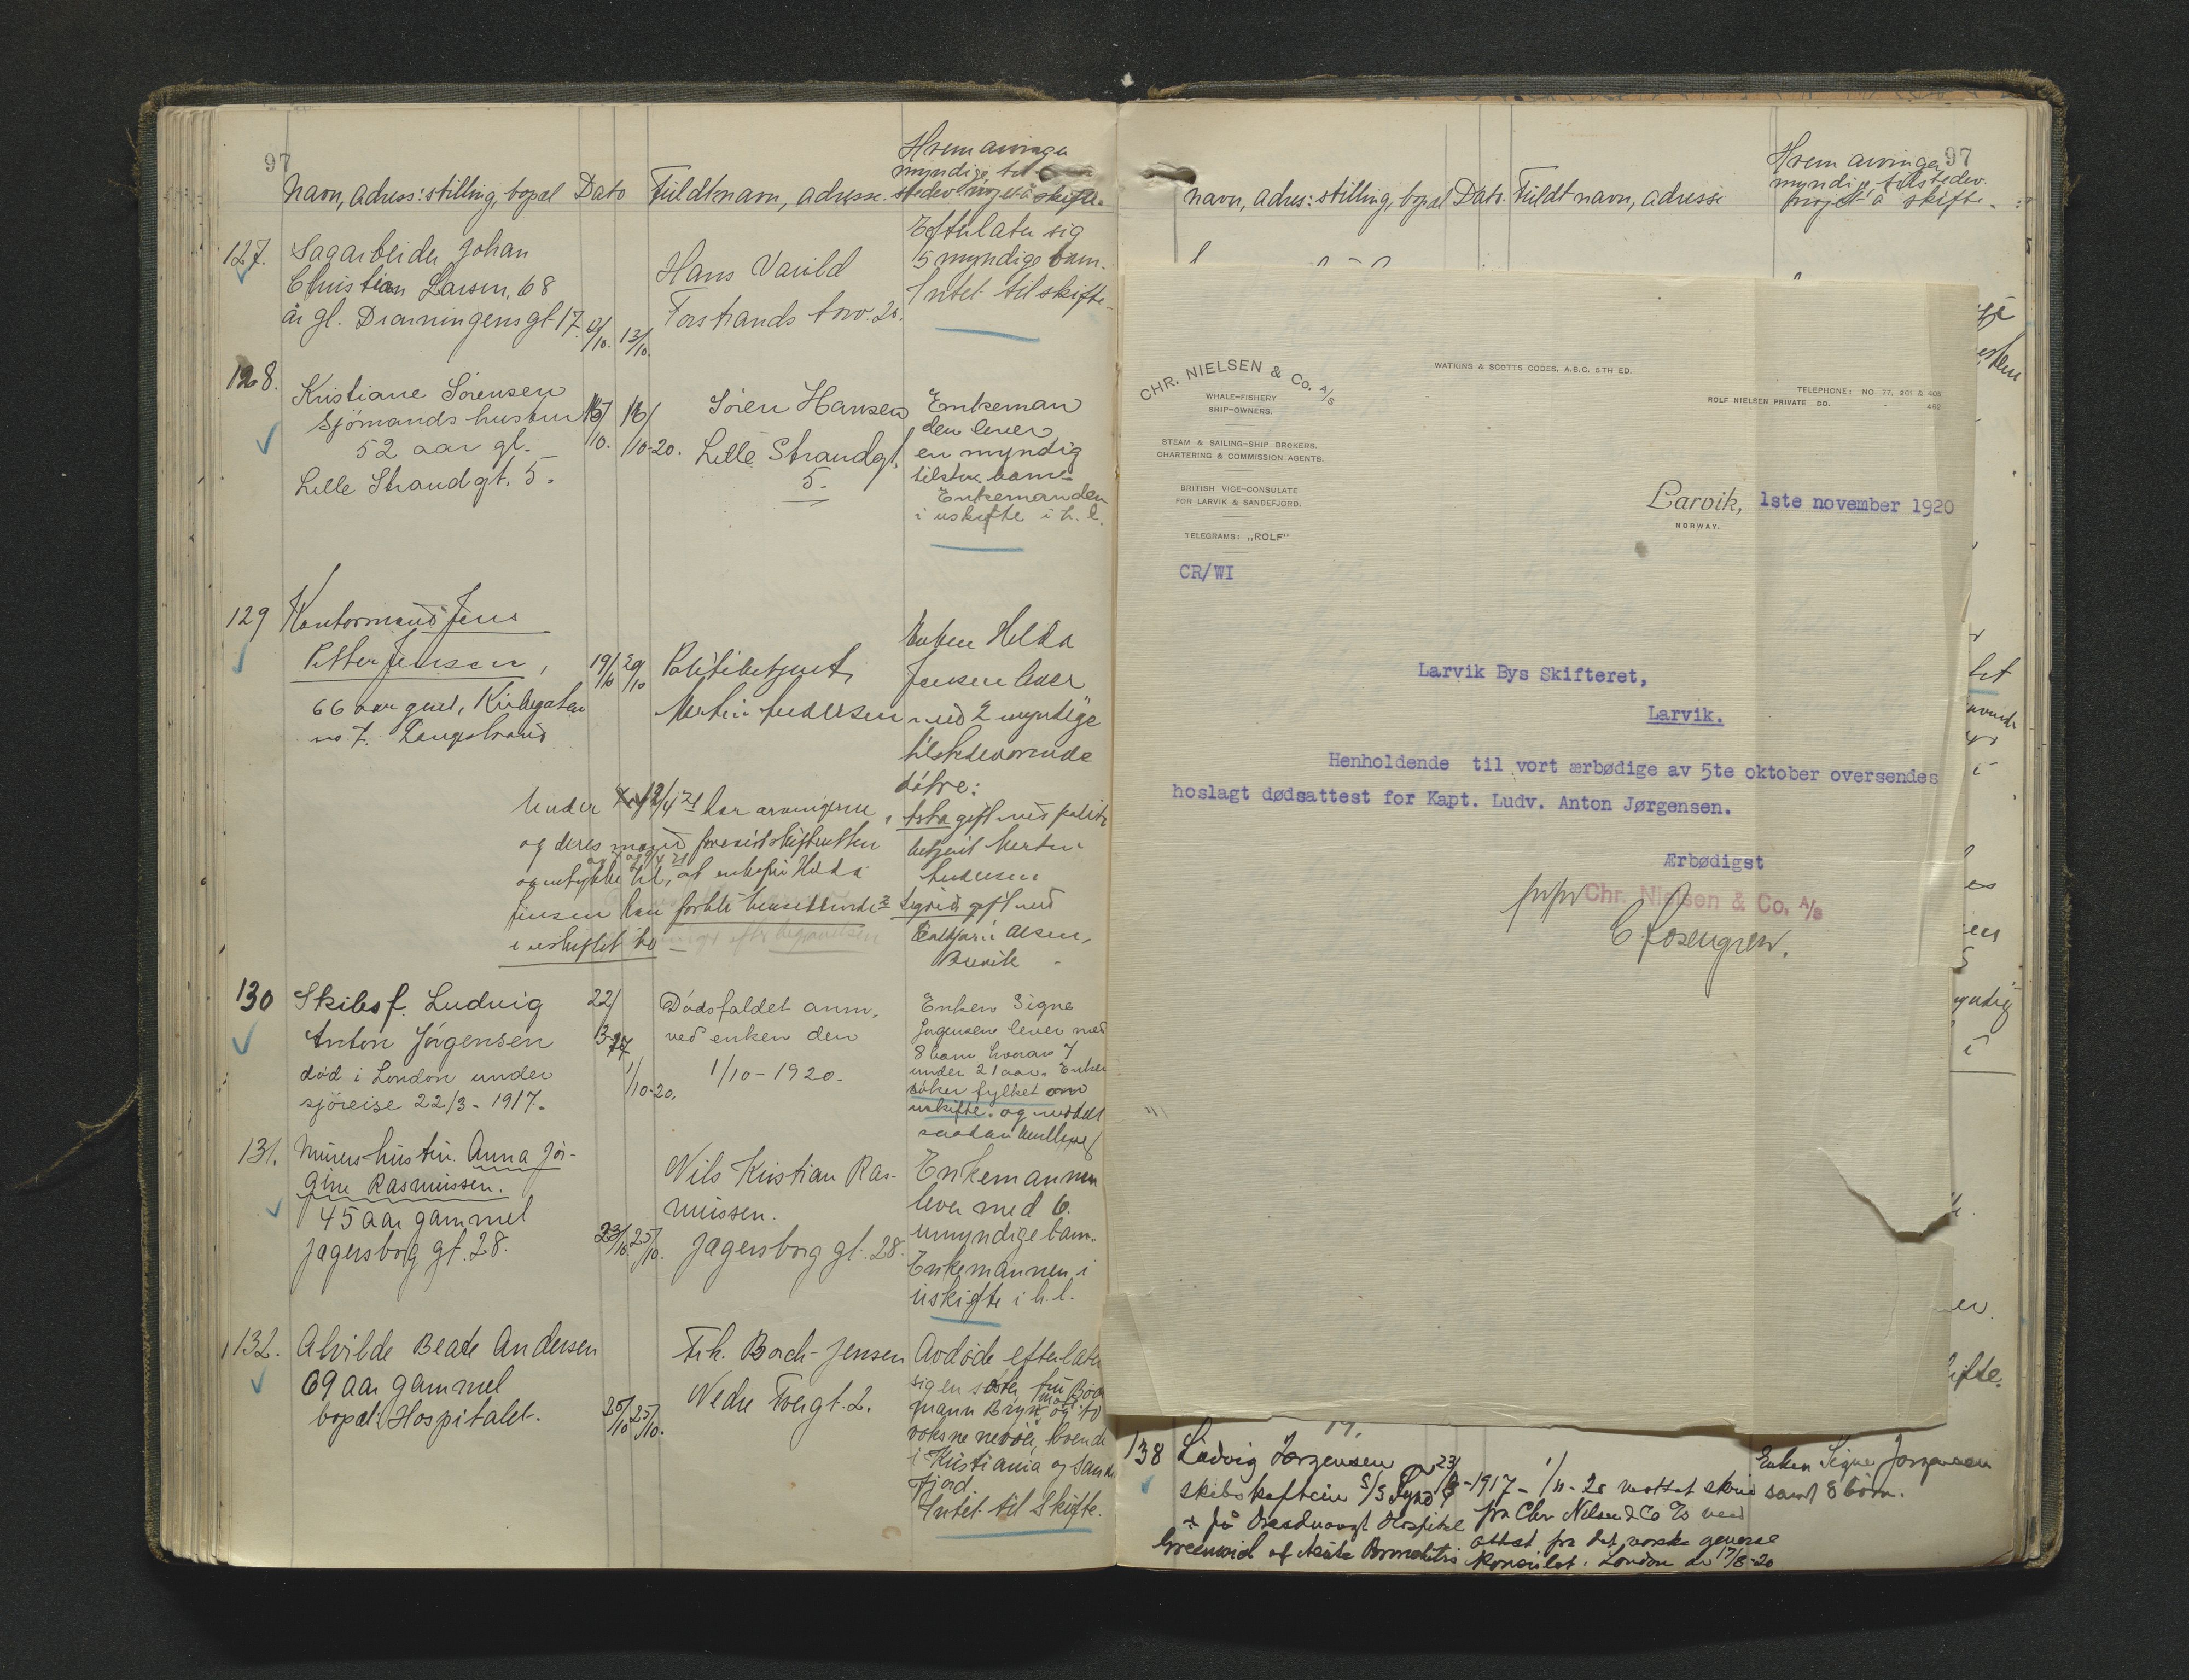 97
Navn, adress: stilling, bopæl Dato Fuldt navn, adresse. Hvem arvinger
myndige, til
stedev. noget å skifte.
127. Sagarbeider Johan
Christian Larsen, 68
år gl. Dronningensgt 17. 12/10. 13/10.
Hans Varild
Torstrands torv. 20.
Efterlater sig
5 myndige barn.
Intet til skifte.
128. Kristiane Sörensen
Sjömands hustru
52 aar gl.
Lille Strandgt. 5.
16/10-20.
Sören Hansen
Lille Strandgt,
5.
Enkeman
den lever
en myndig
tilstev. barn.
Enkemanden
i uskifte i h. l.
129 Kontormand Jens
Petter Jensen,
66 aar gmel, Kirkegaten
no 7. Langestrand
19/10 20/10
Politibetjent,
Martin Andersen
Enken Hilda
Jensen lever
med 2 myndige
tilstedeværende
døtre:
Asta gift med politi
betjent Martin
Andersen
Sigrid gift med
Olsen,
Brevik
Under 12/4 21 har arvingerne
og deres mænd for skifteretten
samtykket til, at enkefru Hilda
Jensen kan forbli hensittende
i uskiftet bo
130 Skibsf. Ludvig
Anton Jörgensen
död i London under
sjöreise 22/3 - 1917.
22/
3-17
1/10-20.
Dödsfaldet anm.
ved enken den
1/10 - 1920.
Enken Signe
Jörgensen lever med
8 barn hvorav 7
under 21 aar. Enken
söker fylket om
uskifte. og meddelt
saadan
131. Murers hustru. Anna Jör-
gine Rasmussen.
45 aar gammel
Jagersborg gt. 28.
23/10. 25/10.
Nils Kristian Ras-
mussen.
Jagersborg gt. 28.
Enkemannen
lever med 6.
umyndige barn.
Enkemannen i
uskifte i h. l.
132. Alvilde Beate Andersen
69 aar gammel
bopæl: Hospitalet.
25/10 25/10.
Frk. Borch-Jensen
Nedre Torvgt. 2.
Avdöde efterlater
sig en söster fru
mann Bryn og to
voksne nevöer, boende
i Kristiania og Sande
fjord
Intet til Skifte.
97
Navn, adres: stilling, bopæl Dato. Fuldt navn, adresse
Hvem arvinger
myndige, tilstedev.
noget å skifte.
CHR. NIELSEN & Co. A/S
WHALE-FISHERY
SHIP-OWNERS.
STEAM & SAILING-SHIP BROKERS.
CHARTERING & COMMISSION AGENTS.
BRITISH VICE-CONSULATE
FOR LARVIK & SANDEFJORD.
TELEGRAMS: „ROLF"
WATKINS & SCOTTS CODES, A.B.C. 5TH ED.
TELEPHONE: NO 77, 201 & 403
ROLF NIELSEN PRIVATE DO. - 462
Larvik, 1ste november 1920
NORWAY.
CR/WI
Larvik Bys Skifteret,
Larvik.
Henholdende til vort ærbødige av 5te oktober oversendes
hoslagt dødsattest for Kapt. Ludv. Anton Jørgensen.
Ærbødigst
Chr. Nielsen & Co. A/S
C. Rosengren.
138 Ludvig Jörgensen
skibskaptein S/S
23/3-1917 - 1/11-20 mottat skriv
Enken Signe Jörgensen
samt 8 börn.
på Dreadnought Hospital
Greenwich af Akute Bronchitis
fra Chr Nielsen & Co A/S med
attest fra det norske general
konsulat i London av 17/8-20